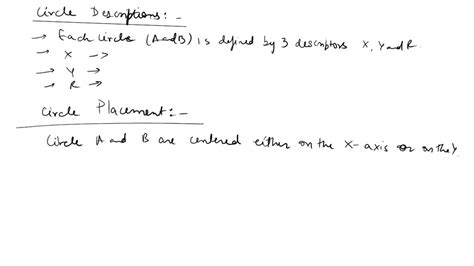 Circle Descriptions:-
→ Each circle (A and B) is defined by 3 descriptors X, Y and R.
→ X →
→ Y →
→ R →
Circle Placement:-
Circle A and B are centered either on the X-axis or on the Y